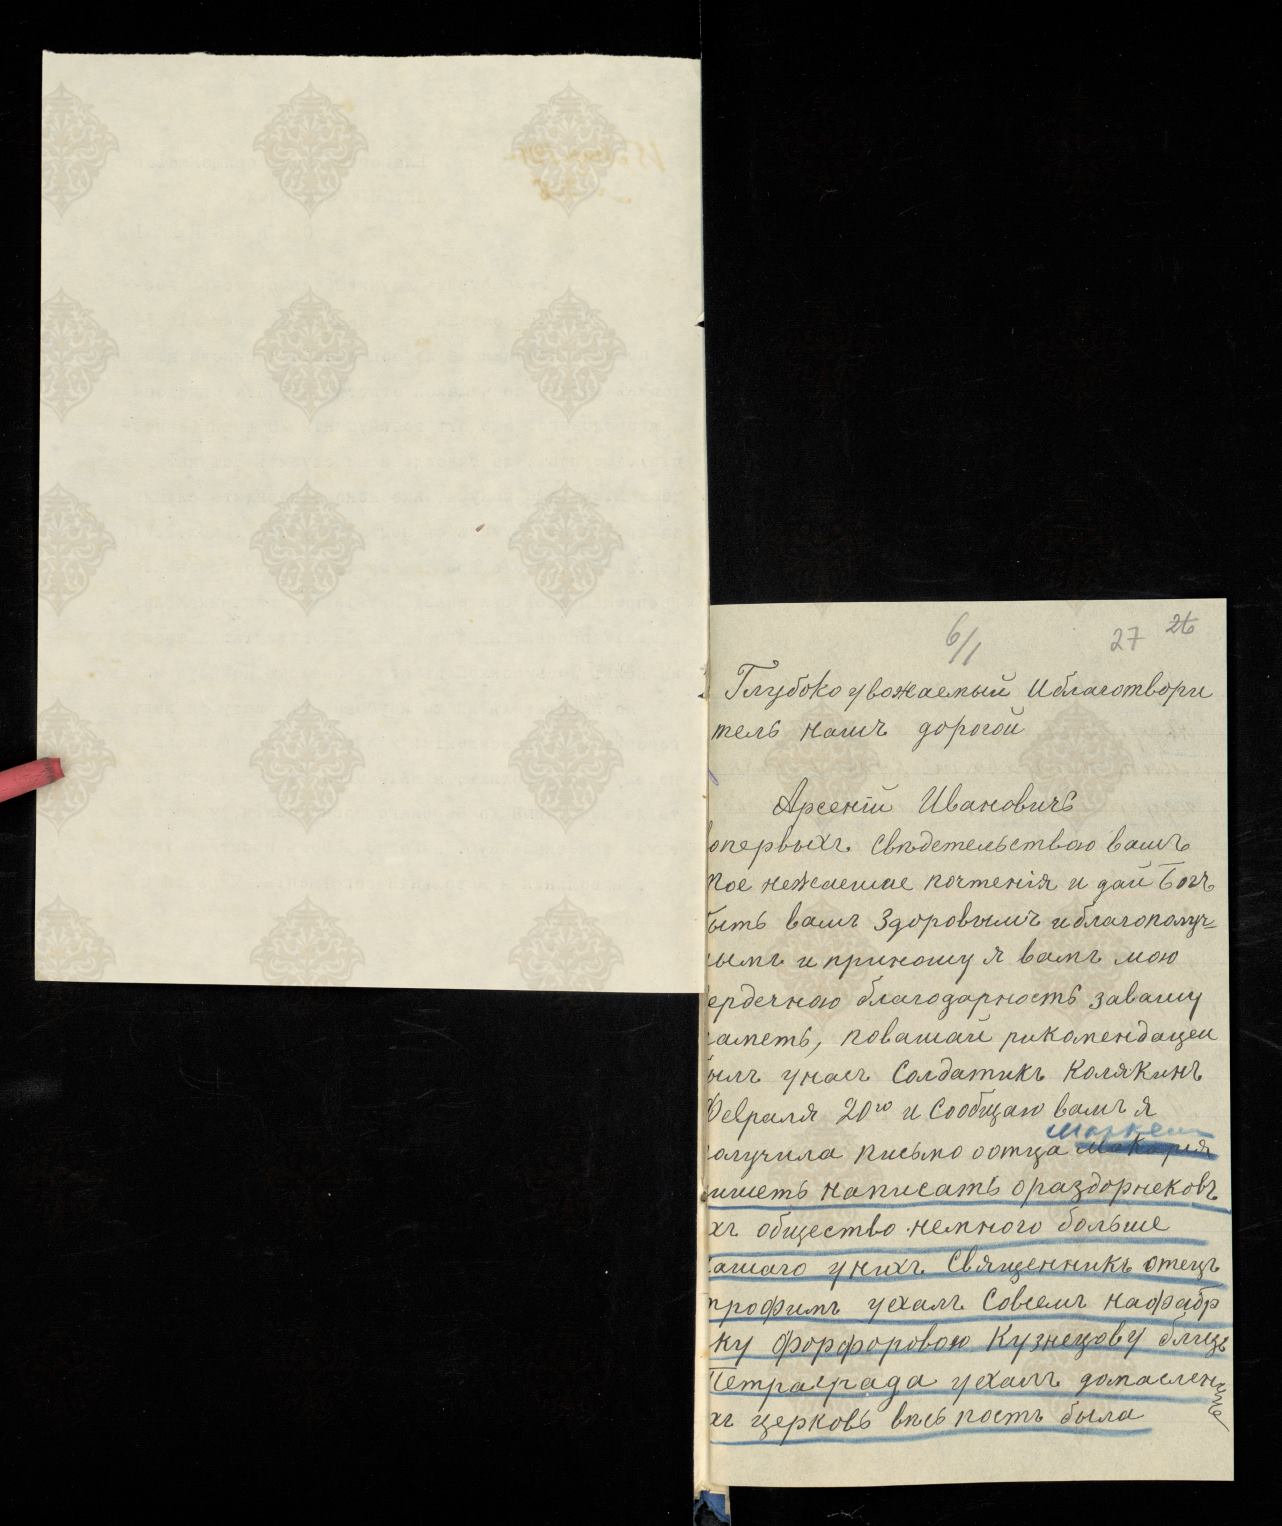 6/1 27 26
Глубоко уважаемый и благотвори
тель нашъ дорогой
Арсеній Ивановичъ
опервыхъ свѣдетельствою вамъ
мое нежаешае почтенія и дай Богъ
быть вамъ здоровымъ и благополуч-
ымъ и приношу я вамъ мою
ердечною благодарность за вашу
аметь, по вашай рикомендацеи
ылъ у насъ солдатикъ Колякинъ
Февраля 20го и сообщаю вамъ я
олучила письмо о отца Макарія
ишетъ написать о раздорнековъ
хъ общество немного больше
ашаго у нихъ священникъ отецъ
трофимъ уехалъ совсемъ на фабр
ку форфоровою Кузнецову близь
Петраграда уехалъ до масленицы
хъ церковь впсь постъ была